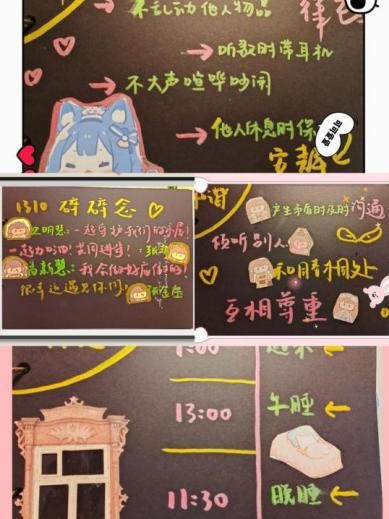 不乱动他人物品
→听歌时带耳机
→不大声喧哗吵闹
→他人休息时保
安静
可可爱爱
1310 碎碎念
一起守护我们的
一起加油!共同进步!
我会做好
很幸运遇见你们
产生矛盾时及时沟通
倾听别人
和睦相处
互相尊重
1:00
起床
13:00
午睡←
11:30
晚睡←